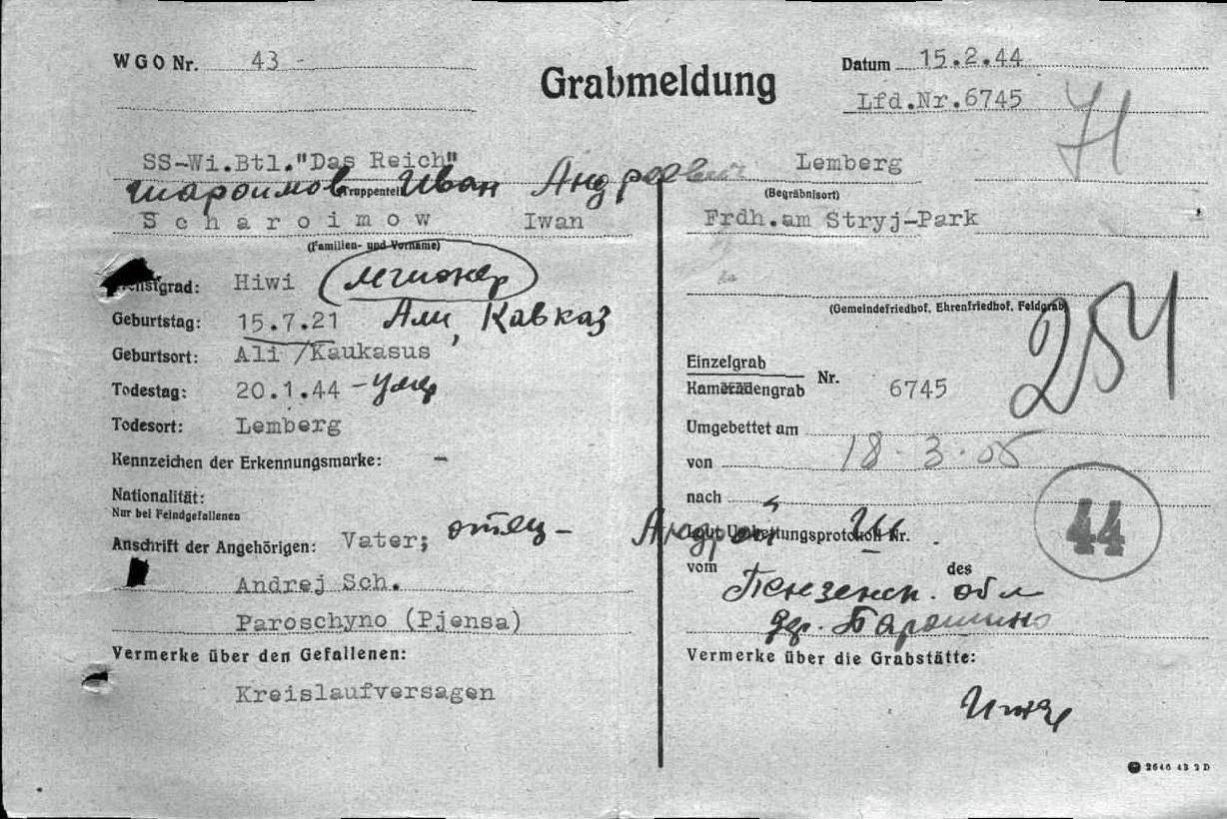 WGO Nr. 43 -
Grabmeldung
Datum 15.2.44
Lfd.Nr.6745
SS-Wi.Btl."Das Reich"
Шароимов Иван Андреевич
(Truppenteil)
Scharoimow Iwan
(Familien- und Vorname)
Dienstgrad: Hiwi легионер
Geburtstag: 15.7.21 Али, Кавказ
Geburtsort: Ali /Kaukasus
Todestag: 20.1.44 – умер
Todesort: Lemberg
Kennzeichen der Erkennungsmarke: –
Nationalität:
Nur bei Feindgefallenen
Anschrift der Angehörigen: Vater; отец – Андрей
Andrej Sch.
Paroschyno (Pjensa)
Vermerke über den Gefallenen:
Kreislaufversagen
Lemberg
(Begräbnisort)
Frdh.am Stryj-Park
(Gemeindefriedhof, Ehrenfriedhof, Feldgrab)
254
Einzelgrab
Kameradengrab Nr. 6745
Umgebettet am
von 18.3.05
nach
Laut Umbettungsprotokoll Nr.
44
vom des
Пензенск. обл
дер. Парошино
Vermerke über die Grabstätte:
2646 43 2 D